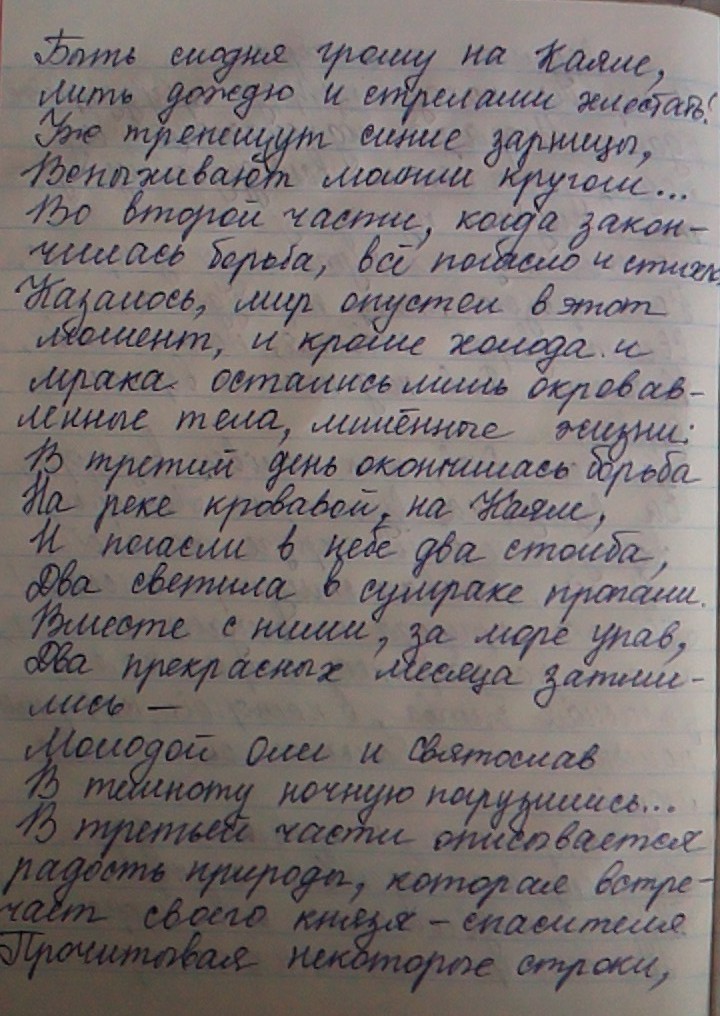 Быть сегодня грому на Каяле,
лить дождю и стрелами хлестать!
Уж трепещут синие зарницы,
Вспыхивают молнии кругом...
Во второй части, когда закон-
чилась борьба, всё погасло и стихло.
Казалось, мир опустел в этот
момент, и кроме холода и
мрака остались лишь окровав-
ленные тела, лишённые жизни:
В третий день окончилась борьба
На реке кровавой, на Каяле,
И погасли в небе два столба,
Два светила в сумраке пропали.
Вместе с ними, за море упав,
Два прекрасных месяца затми-
лись —
Молодой Олег и Святослав
В темноту ночную погрузились...
В третьей части описывается
радость природы, которая встре-
чает своего князя - спасителя
Прочитывая некоторые строки,